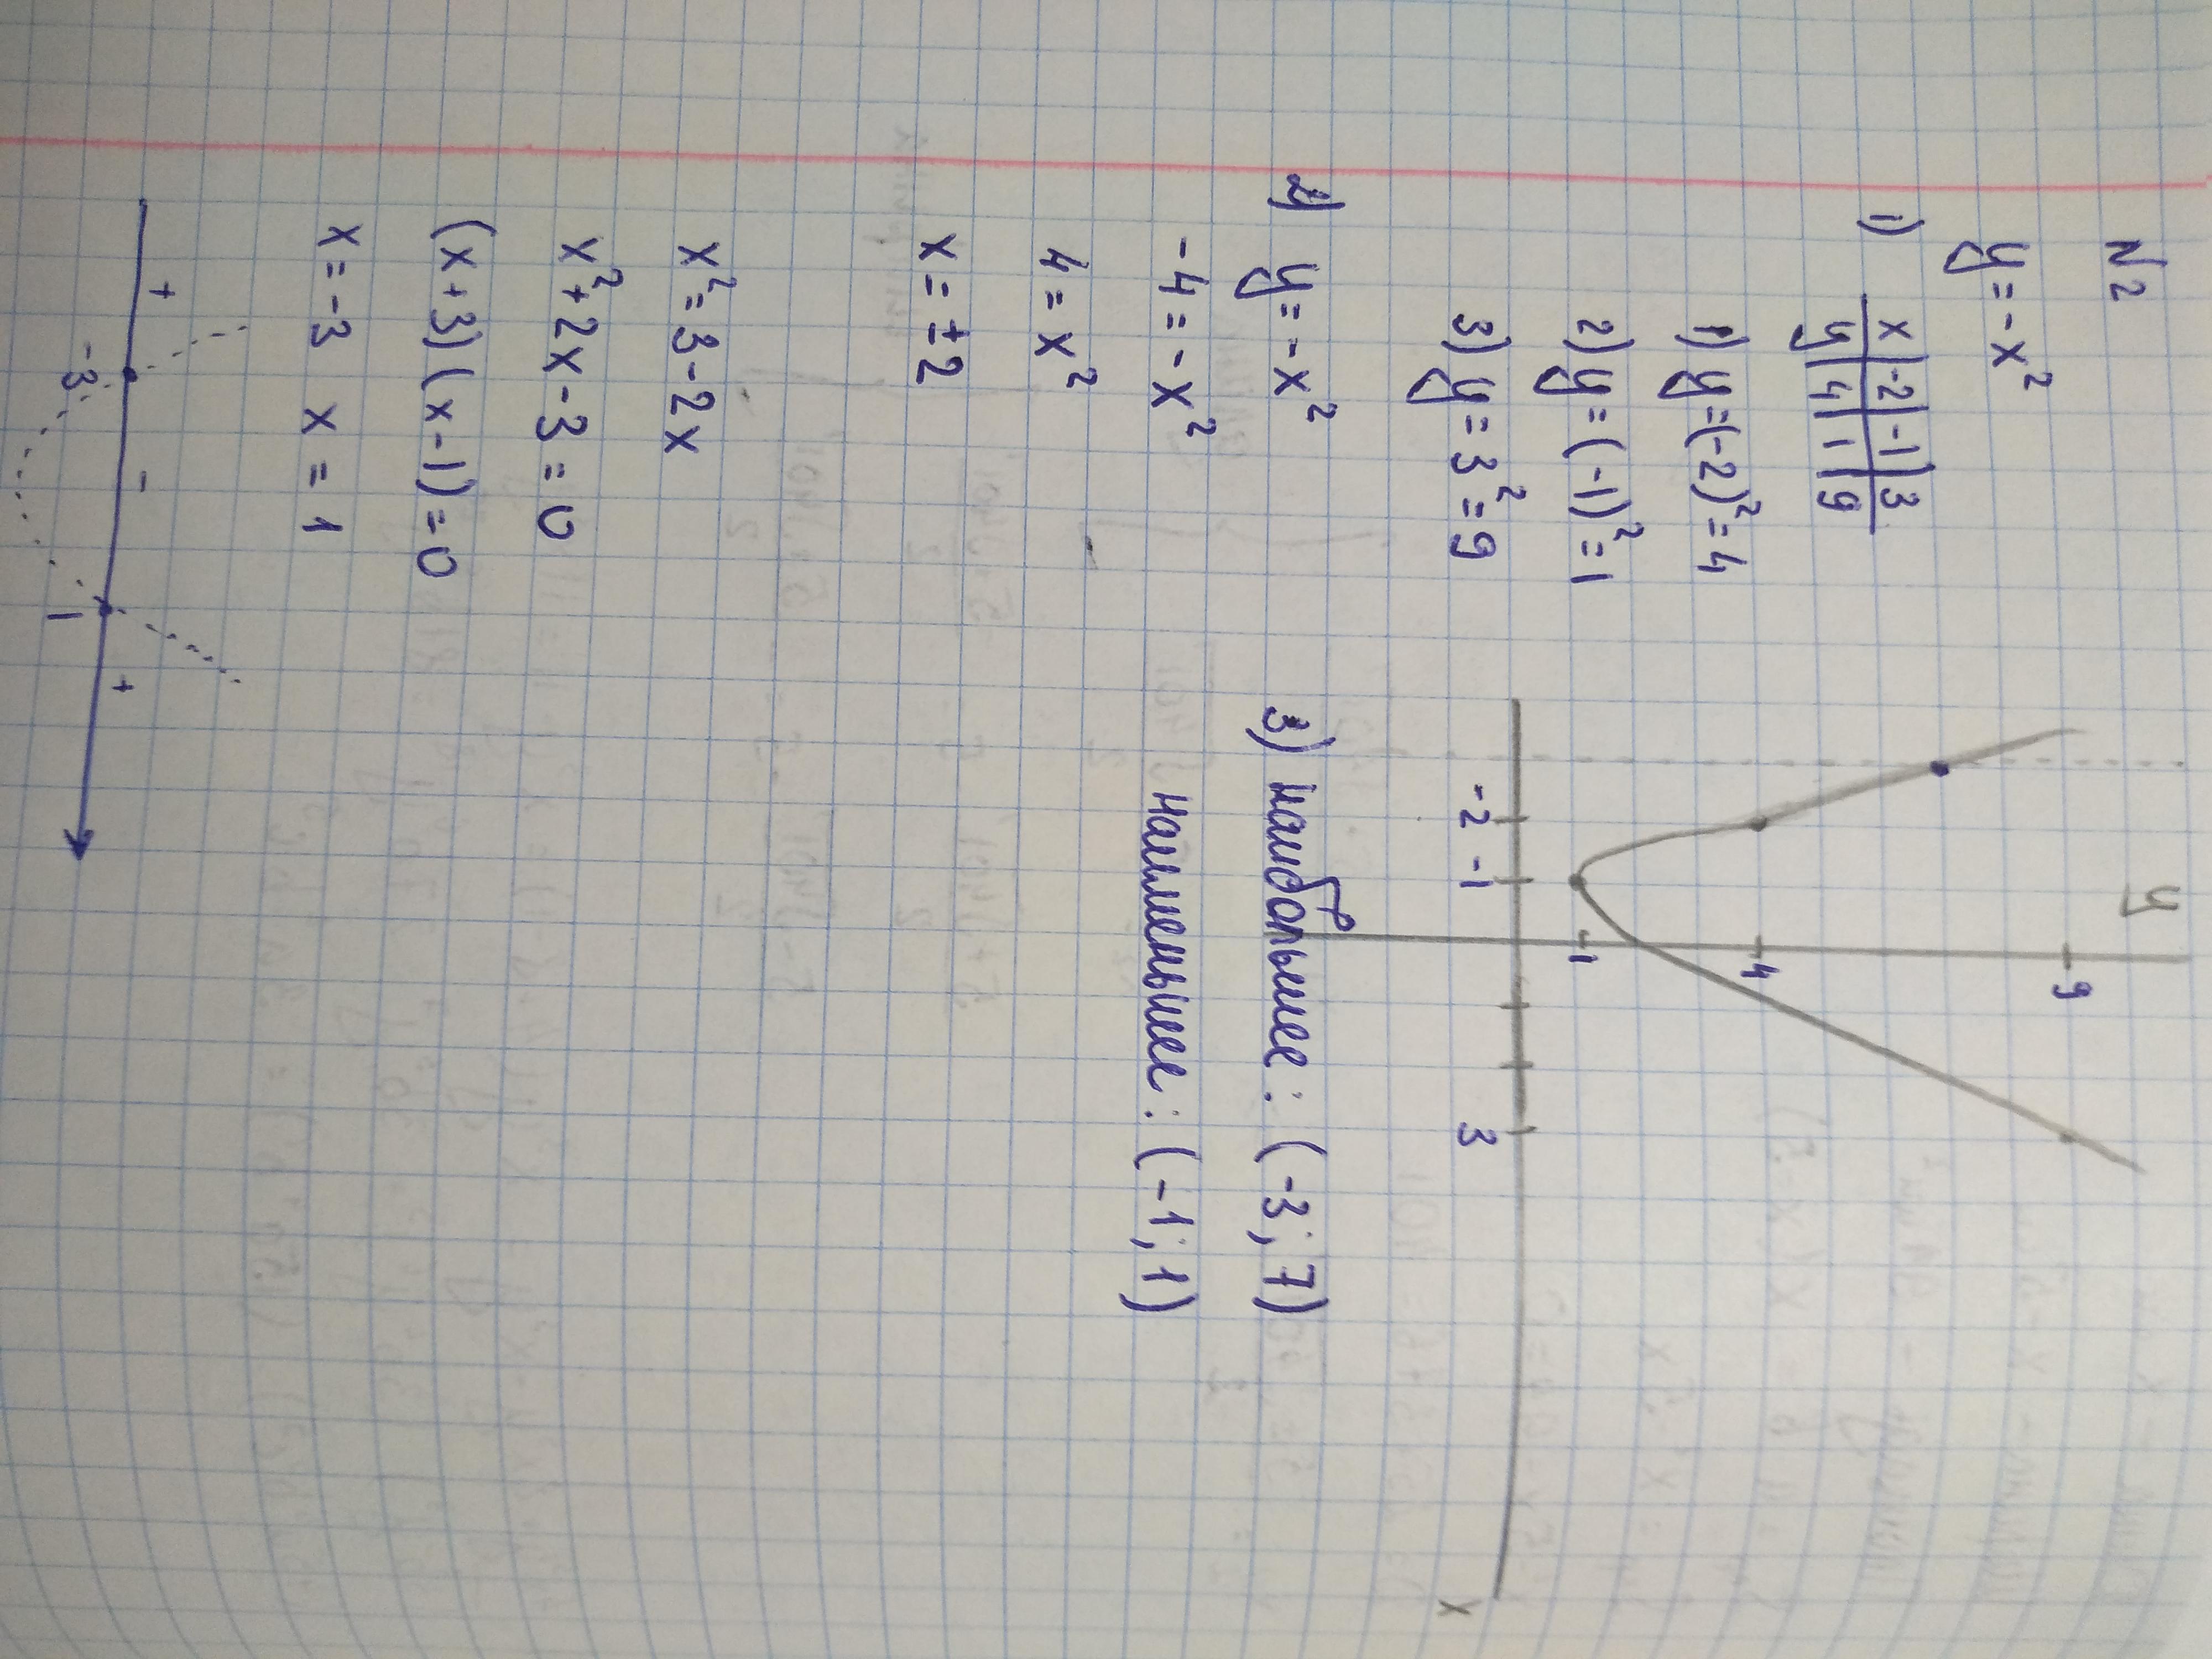 N2
y = -x²
1)
x | -2 | -1 | 3
y | 4 | 1 | 9
1) y = (-2)² = 4
2) y = (-1)² = 1
3) y = 3² = 9
y
9
4
1
-2 -1 3
x
2) y = -x²
-4 = -x²
4 = x²
x = ±2
3) наибольшее: (-3; 7)
наименьшее: (-1; 1)
x² = 3-2x
x² + 2x - 3 = 0
(x+3)(x-1) = 0
x = -3 x = 1
+ - +
-3 1